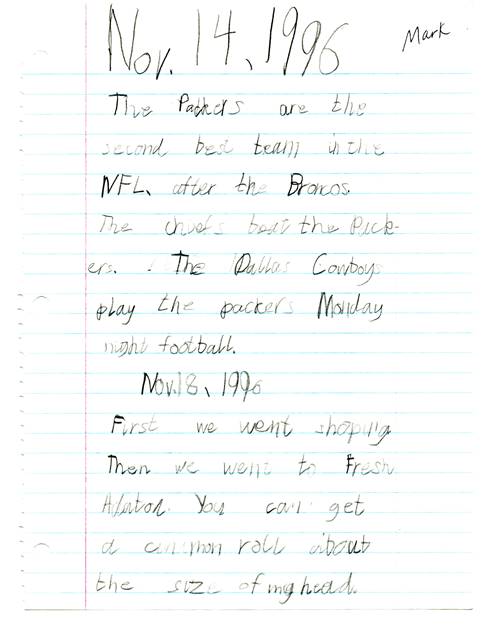 Nov. 14, 1996
Mark
The Packers are the
second best team in the
NFL, after the Broncos.
The chiefs beat the Pack-
ers. The Dallas Cowboys
play the packers Monday
night football.
Nov. 18, 1996
First we went shoping
Then we went to Fresh
You can get
a cinimon roll about
the size of my head.